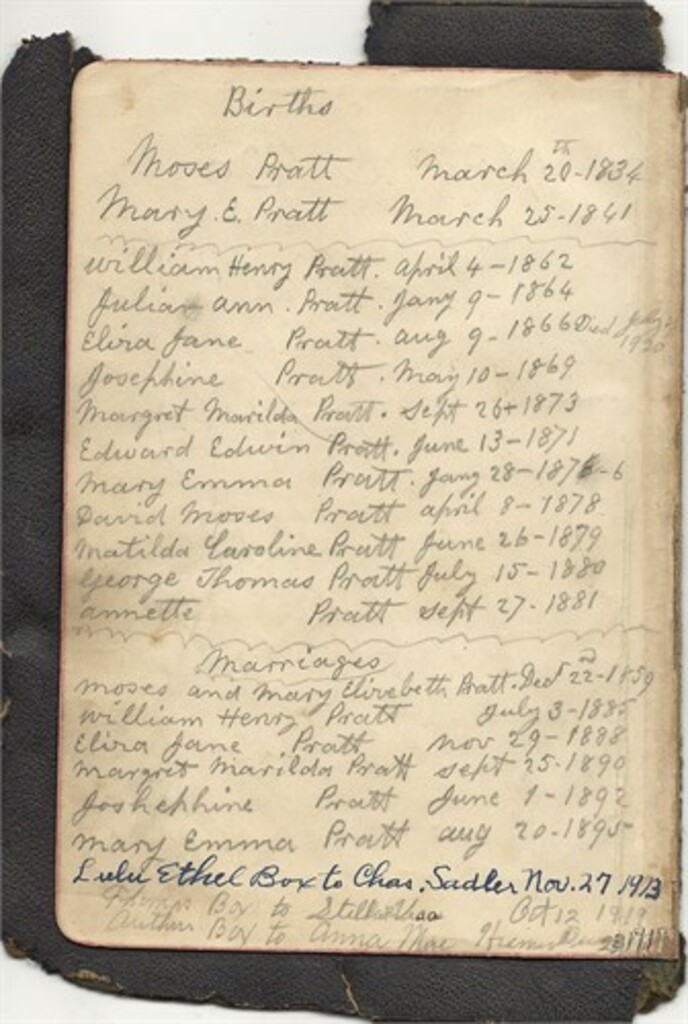 Births
Moses Pratt March 20th-1834
Mary. E. Pratt March 25-1841
William Henry Pratt. april 4-1862
Julia ann. Pratt. Jany 9-1864
Eliza Jane Pratt. aug 9-1866 Died July
1920
Josephine Pratt. May 10-1869
Margret Marilda Pratt. Sept 26+1873
Edward Edwin Pratt. June 13-1871
Mary Emma Pratt. Jany 28-1876-6
David Moses Pratt april 8-1878
Matilda Caroline Pratt June 26-1879
George Thomas Pratt July 15-1880
annette Pratt Sept 27-1881
Marriages
Moses and Mary Elizebeth Pratt. Dec 22nd-1859
William Henry Pratt July 3-1885
Eliza Jane Pratt Nov 29-1888
Margret Marilda Pratt Sept 25-1890
Joshephine Pratt June 1-1892
Mary Emma Pratt aug 20-1895
Lulu Ethel Box to Chas. Sadler Nov. 27 1913
Thomas Box to Stella Oct 12 1919
Author Box to Anna Mae